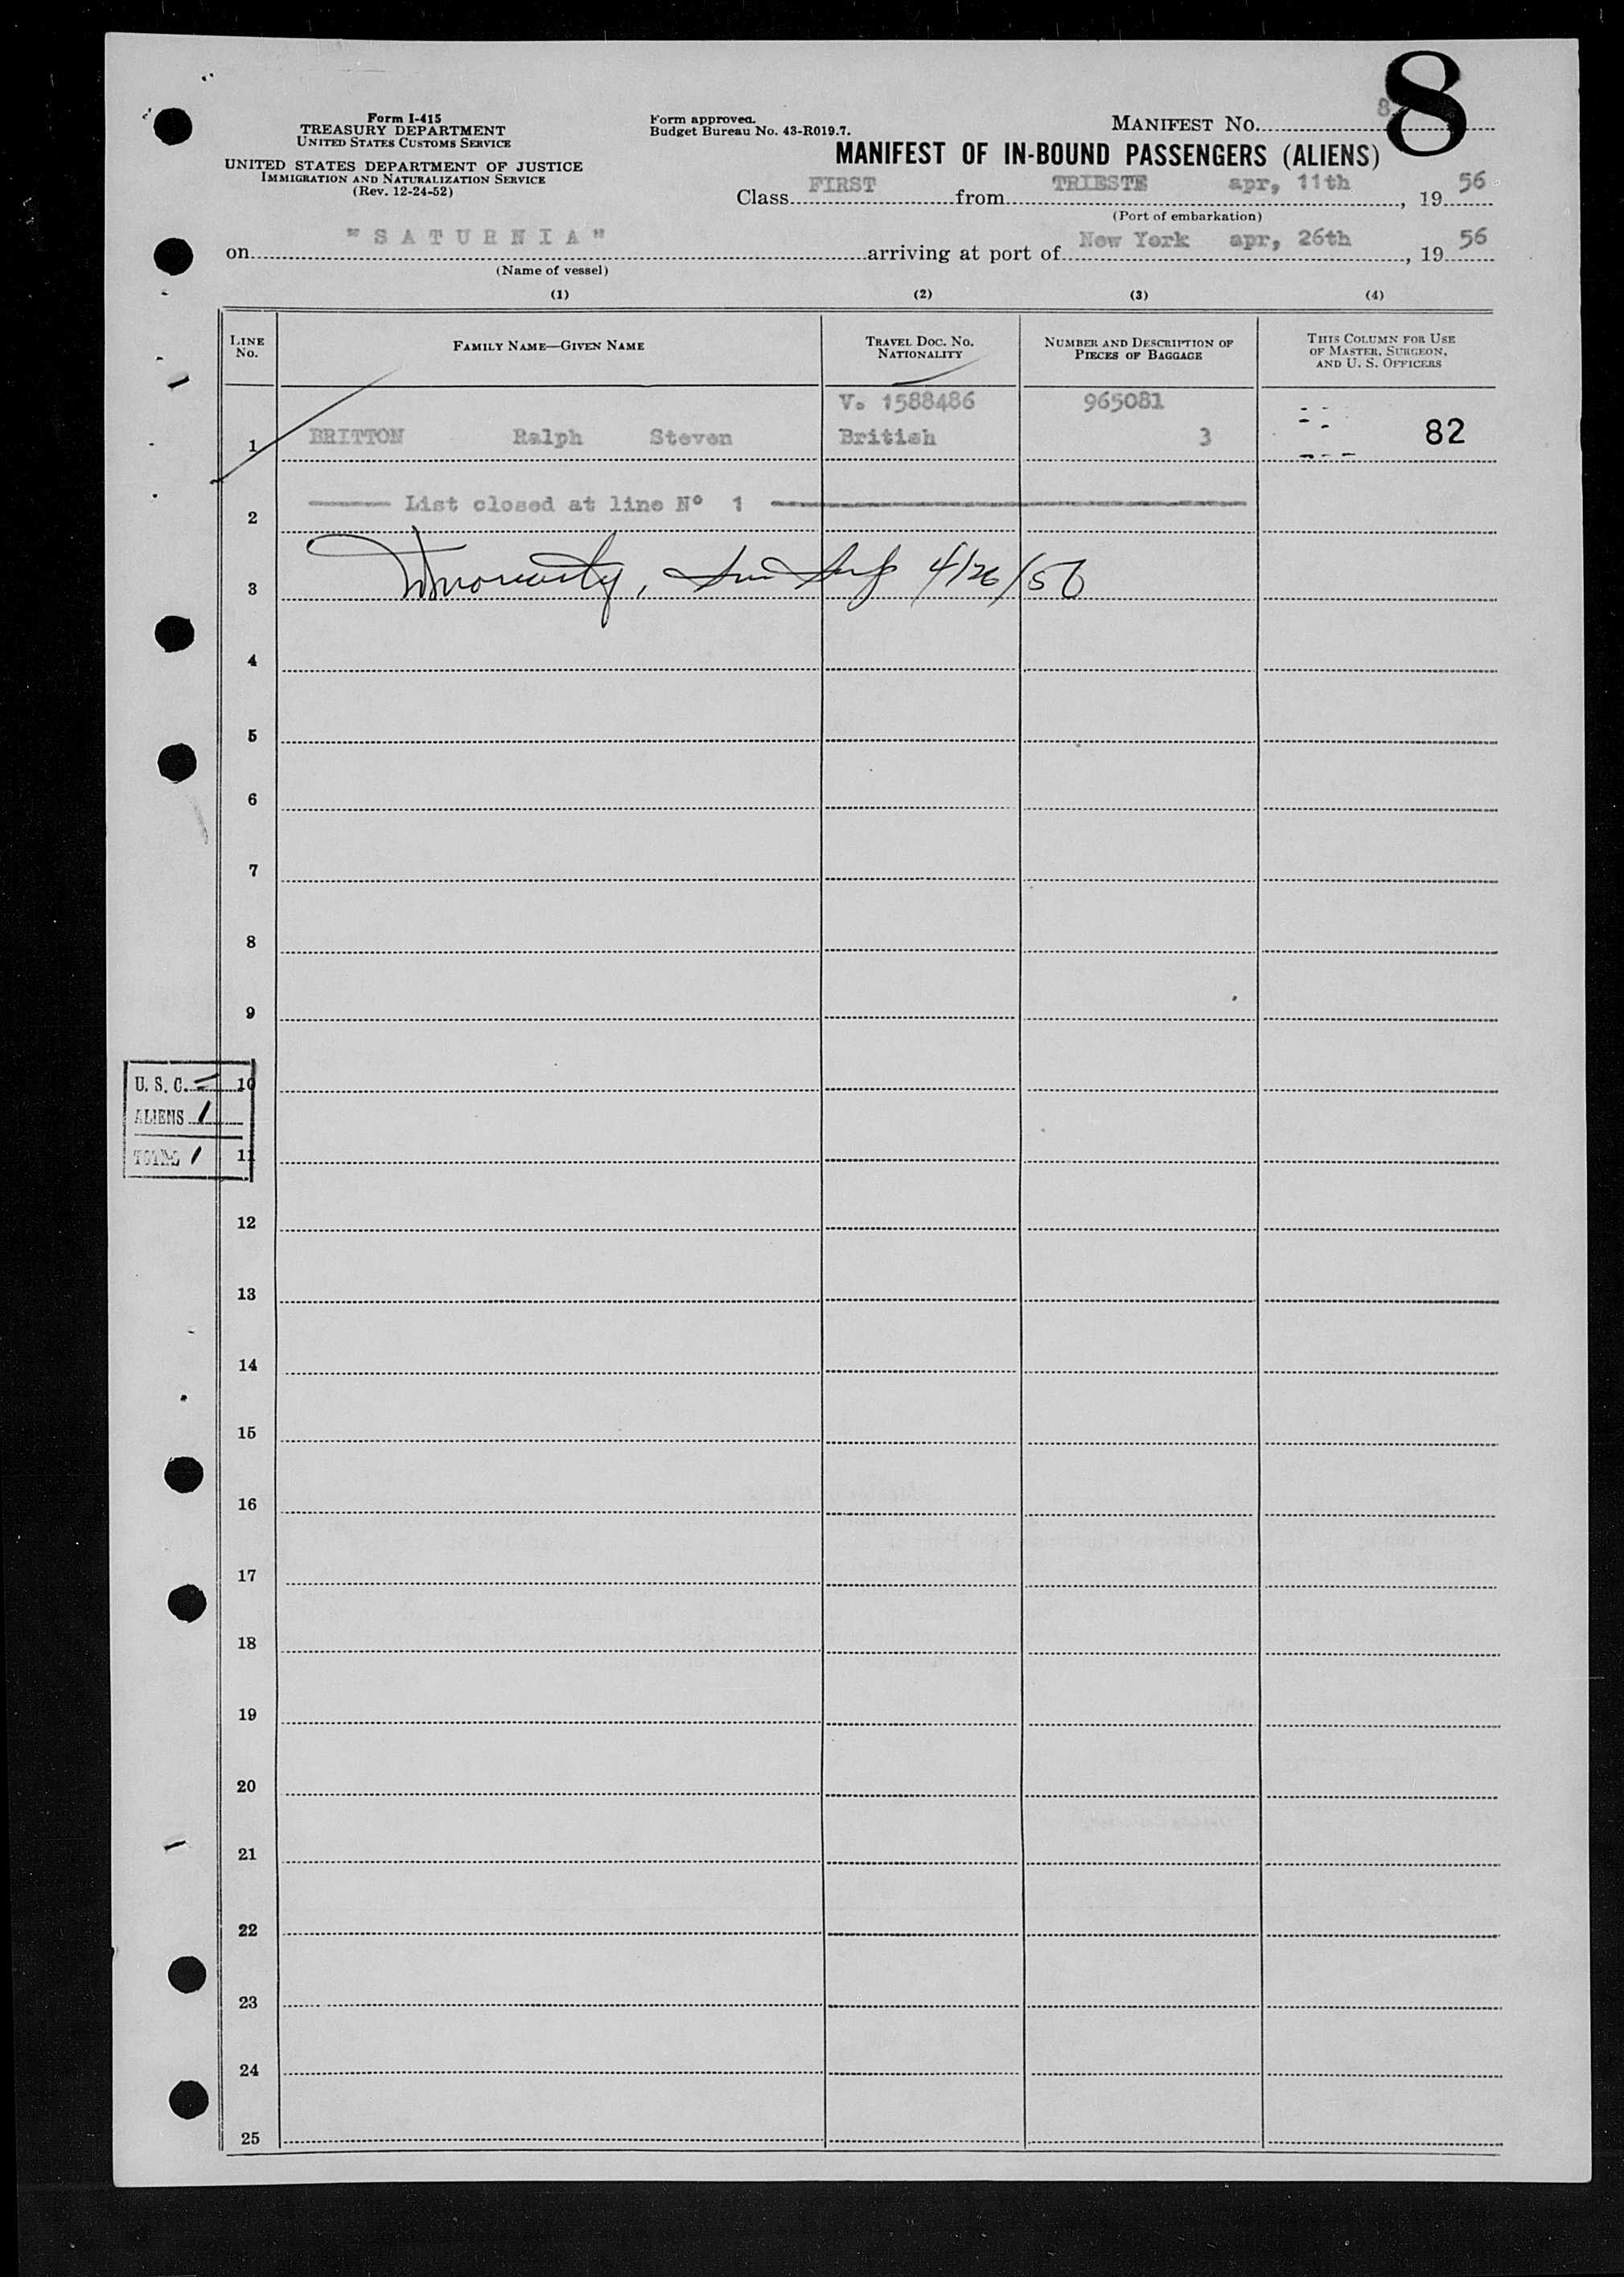 8
Form I-415
TREASURY DEPARTMENT
UNITED STATES CUSTOMS SERVICE
UNITED STATES DEPARTMENT OF JUSTICE
IMMIGRATION AND NATURALIZATION SERVICE
(Rev. 12-24-52)
Form approved.
Budget Bureau No. 43-R019.7.
MANIFEST NO. 8
MANIFEST OF IN-BOUND PASSENGERS (ALIENS)
Class FIRST from TRIESTE apr, 11th, 19 56
(Port of embarkation)
on "SATURNIA" arriving at port of New York apr, 26th, 19 56
(Name of vessel)
(1) (2) (3) (4)
LINE NO. FAMILY NAME—GIVEN NAME TRAVEL DOC. NO. NATIONALITY NUMBER AND DESCRIPTION OF PIECES OF BAGGAGE THIS COLUMN FOR USE OF MASTER, SURGEON, AND U. S. OFFICERS
V. 1588486 965081
1 BRITTON Ralph Steven British 3 82
2 List closed at line Nº 1
3 4/26/56
4
5
6
7
8
9
U. S. C. - 10
ALIENS 1
TOTAL 1 11
12
13
14
15
16
17
18
19
20
21
22
23
24
25